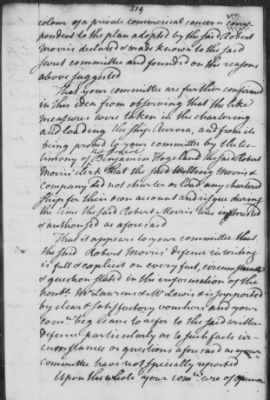 219
colour of a private commercial concern corres-
pondent to the plan adopted by the said Robert
Morris declared & made known to the said
secret committee and founded on the reasons
above suggested
That your committee are further confirmed
in this idea from observing that the like
measures were taken in the chartering
and loading the ship Aurora, and from its
being proved to your committee by the tes-
timony of Benjamin Hogeland the said Robert
Morris's clerk that the said Willing Morris &
company did not charter or load any chartered
ship for their own account and risque during
the time the said Robert Morris was empowered
& authorised as aforesaid
That it appears to your committee that
the said Robert Morris' defence in writing
is full & explicit on every fact, circumstance
& question stated in the information of the
honble Mr Laurens & Mr Lewis & is supported
by clear & satisfactory vouchers and your
comee beg leave to refer to the said written
defence particularly as to such facts cir-
cumstances or questions aforesaid as your
committee have not specially reported
Upon the whole your comee are of opinion